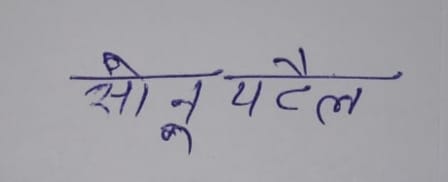 सोनू पटैल